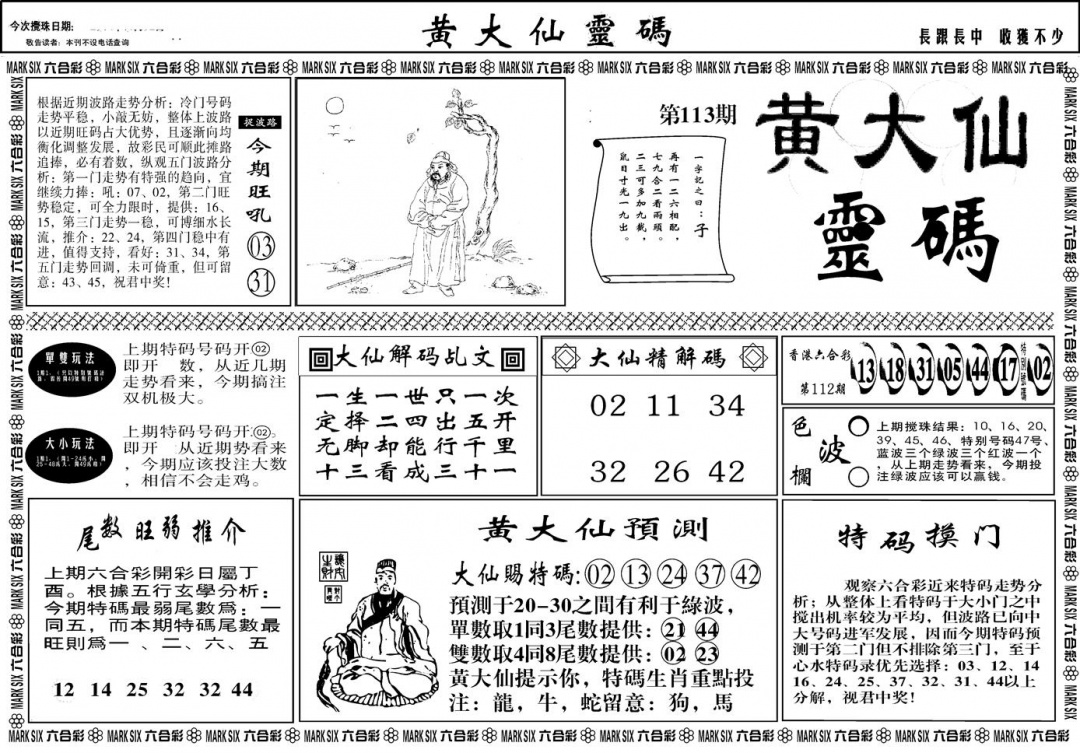 今次攪珠日期:
敬告读者：本刊不设电话查询
黄大仙靈碼
長跟長中 收獲不少
MARK SIX 六合彩 MARK SIX 六合彩 MARK SIX 六合彩 MARK SIX 六合彩 MARK SIX 六合彩 MARK SIX 六合彩 MARK SIX 六合彩 MARK SIX 六合彩 MARK SIX 六合彩 MARK SIX 六合彩 MARK SIX 六合彩
根据近期波路走势分析：冷门号码
走势平稳，小敲无妨，整体上波路
以近期旺码占大优势，且逐渐向均
衡化调整发展，故彩民可顺此摊路
追捧，必有着数，纵观五门波路分
析：第一门走势有特强的趋向，宜
继续力捧：吼：07、02，第二门旺
势稳定，可全力限时，提供：16、
15，第三门走势一稳，可博细水长
流，推介：22、24，第四门稳中有
进，值得支持，看好：31、34，第
五门走势回调，未可倚重，但可留
意：43、45，祝君中奖！
捉波路
今期旺吼
03
31
第113期
一字記之曰：子
再有一二六相配，
七九合二看兩頭。
二三可多加九截，
鼠目寸光一九出。
黄大仙
靈碼
單雙玩法
上期特码号码开02
即开 数，从近几期
走势看来，今期搞注
双机极大。
大小玩法
上期特码号码开02。
即开 从近期势看来
，今期应该投注大数
，相信不会走鸡。
大仙解码乩文
一生一世只一次
定择二四出五开
无脚却能行千里
十三看成三十一
大仙精解碼
02 11 34
32 26 42
香港六合彩
第112期
13 18 31 05 44 17 特别號碼 02
色波欄
上期搅珠结果：10、16、20、
39、45、46、特别号码47号、
蓝波三个绿波三个红波一个
，从上期走势看来，今期投
注绿波应该可以赢钱。
尾数旺弱推介
上期六合彩開彩日屬丁
酉。根據五行玄學分析：
今期特碼最弱尾數爲：一
同五，而本期特碼尾數最
旺則爲一 、二、六、五
12 14 25 32 32 44
黄大仙預測
大仙賜特碼:02 13 24 37 42
預測于20-30之間有利于綠波，
單數取1同3尾數提供：21 44
雙數取4同8尾數提供：02 23
黄大仙提示你，特碼生肖重點投
注：龍，牛，蛇留意：狗，馬
特码摸门
观察六合彩近来特码走势分
析；从整体上看特码于大小门之中
搅出机率较为平均，但波路已向中
大号码进军发展，因而今期特码预
测于第二门但不排除第三门，至于
心水特码录优先选择：03、12、14
16、24、25、37、32、31、44以上
分解，视君中奖！
MARK SIX 六合彩 MARK SIX 六合彩 MARK SIX 六合彩 MARK SIX 六合彩 MARK SIX 六合彩 MARK SIX 六合彩 MARK SIX 六合彩 MARK SIX 六合彩 MARK SIX 六合彩 MARK SIX 六合彩 MARK SIX 六合彩